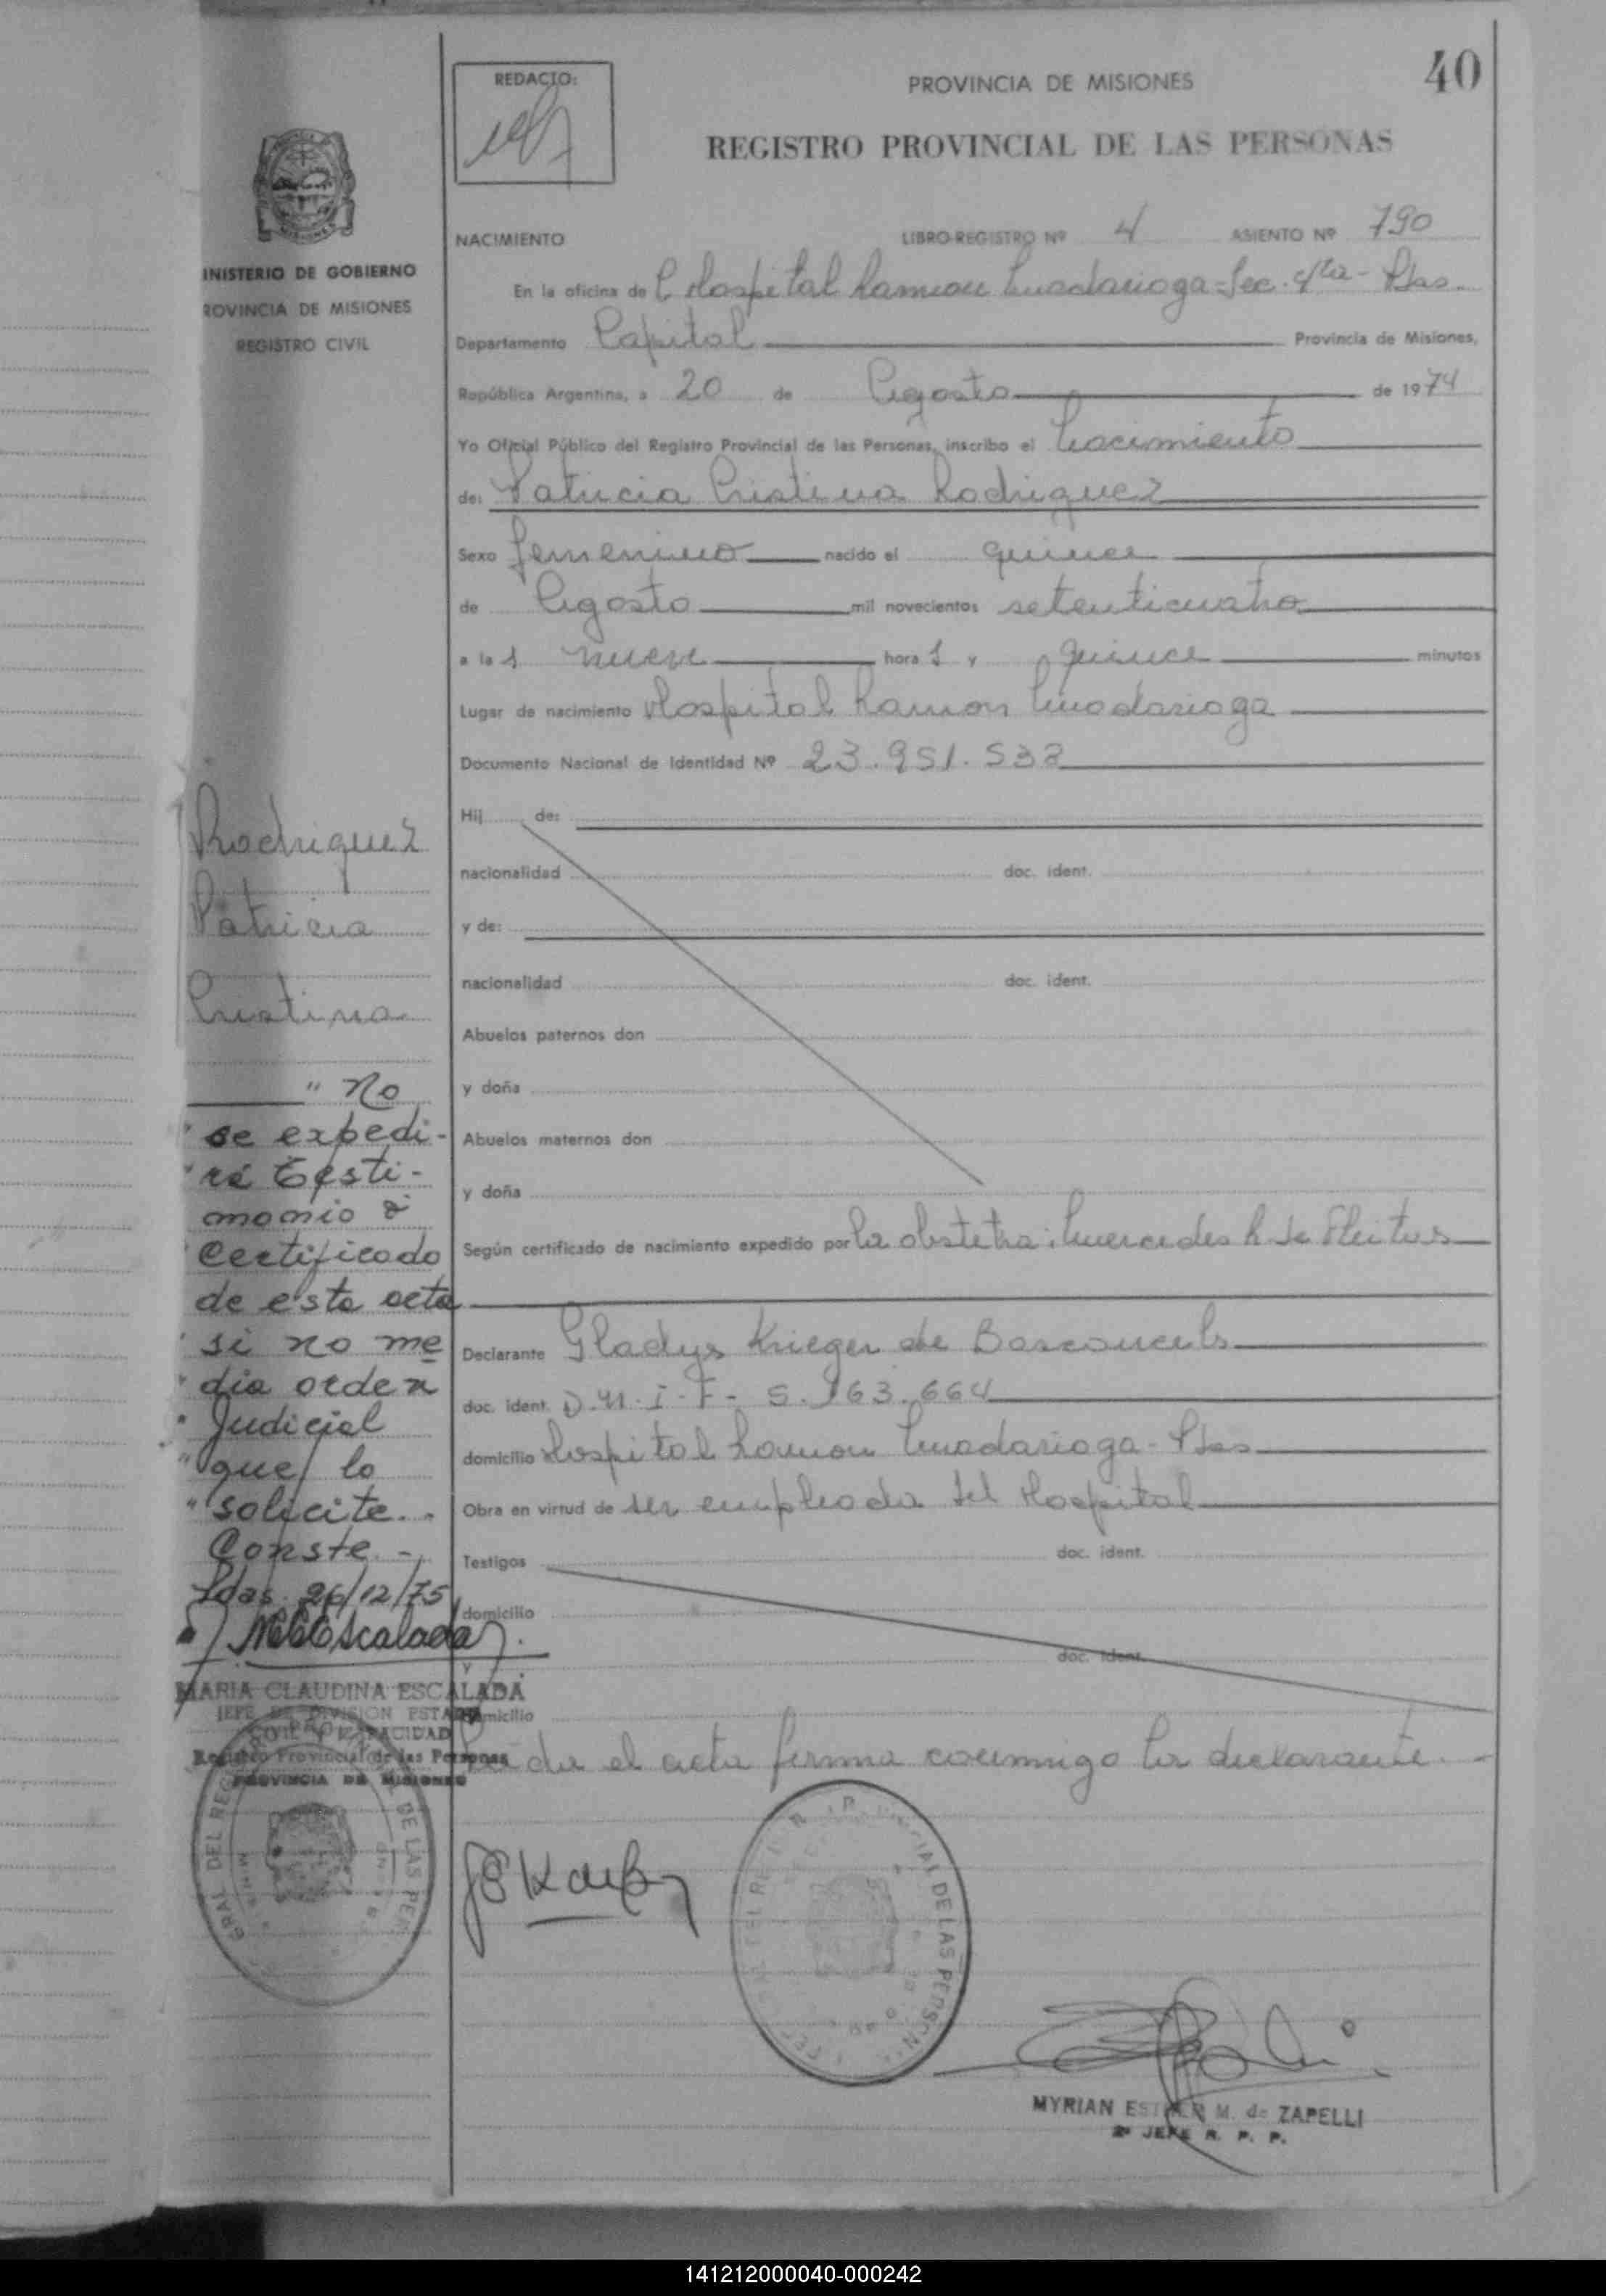 40
REDACTO:
PROVINCIA DE MISIONES
REGISTRO PROVINCIAL DE LAS PERSONAS
NACIMIENTO LIBRO-REGISTRO Nº 4 ASIENTO Nº 790
En la oficina de Hospital Ramon Madariaga - Sec. 4ta - Pdas.
Departamento Capital Provincia de Misiones,
República Argentina, a 20 de Agosto de 1974
Yo Oficial Público del Registro Provincial de las Personas, inscribo el Nacimiento
de: Patricia Cristina Rodriguez
Sexo femenino nacido el quince
de Agosto mil novecientos setenticuatro
a las nueve horas y quince minutos
Lugar de nacimiento Hospital Ramon Madariaga
Documento Nacional de Identidad Nº 23.951.532
Hij de:
nacionalidad doc. ident.
y de:
nacionalidad doc. ident.
Abuelos paternos don
y doña
Abuelos maternos don
y doña
Según certificado de nacimiento expedido por la obstetra: Mercedes R. de Fleitas
Declarante Gladys Krieger de
doc. ident. D.N.I.F. 5.163.664
domicilio Hospital Ramon Madariaga - Pdas
Obra en virtud de ser empleada del Hospital
Testigos doc. ident.
domicilio
y doc. ident.
domicilio
Leida el acta firma conmigo la declarante.-
MYRIAN ESTHER M. de ZAPELLI
2º JEFE R. P. P.
INISTERIO DE GOBIERNO
ROVINCIA DE MISIONES
REGISTRO CIVIL
Rodriguez
Patricia
Cristina
" No
" se expedi-
" rá testi-
monio ó
" Certificado
de esta acta
" si no me
" dia orden
" Judicial
" que lo
" solicite..
Conste.-
Pdas. 26/12/75
MARIA CLAUDINA ESCALADA
JEFE DE DIVISION ESTADO
CIVIL Y CAPACIDAD
Registro Provincial de las Personas
PROVINCIA DE MISIONES
141212000040-000242